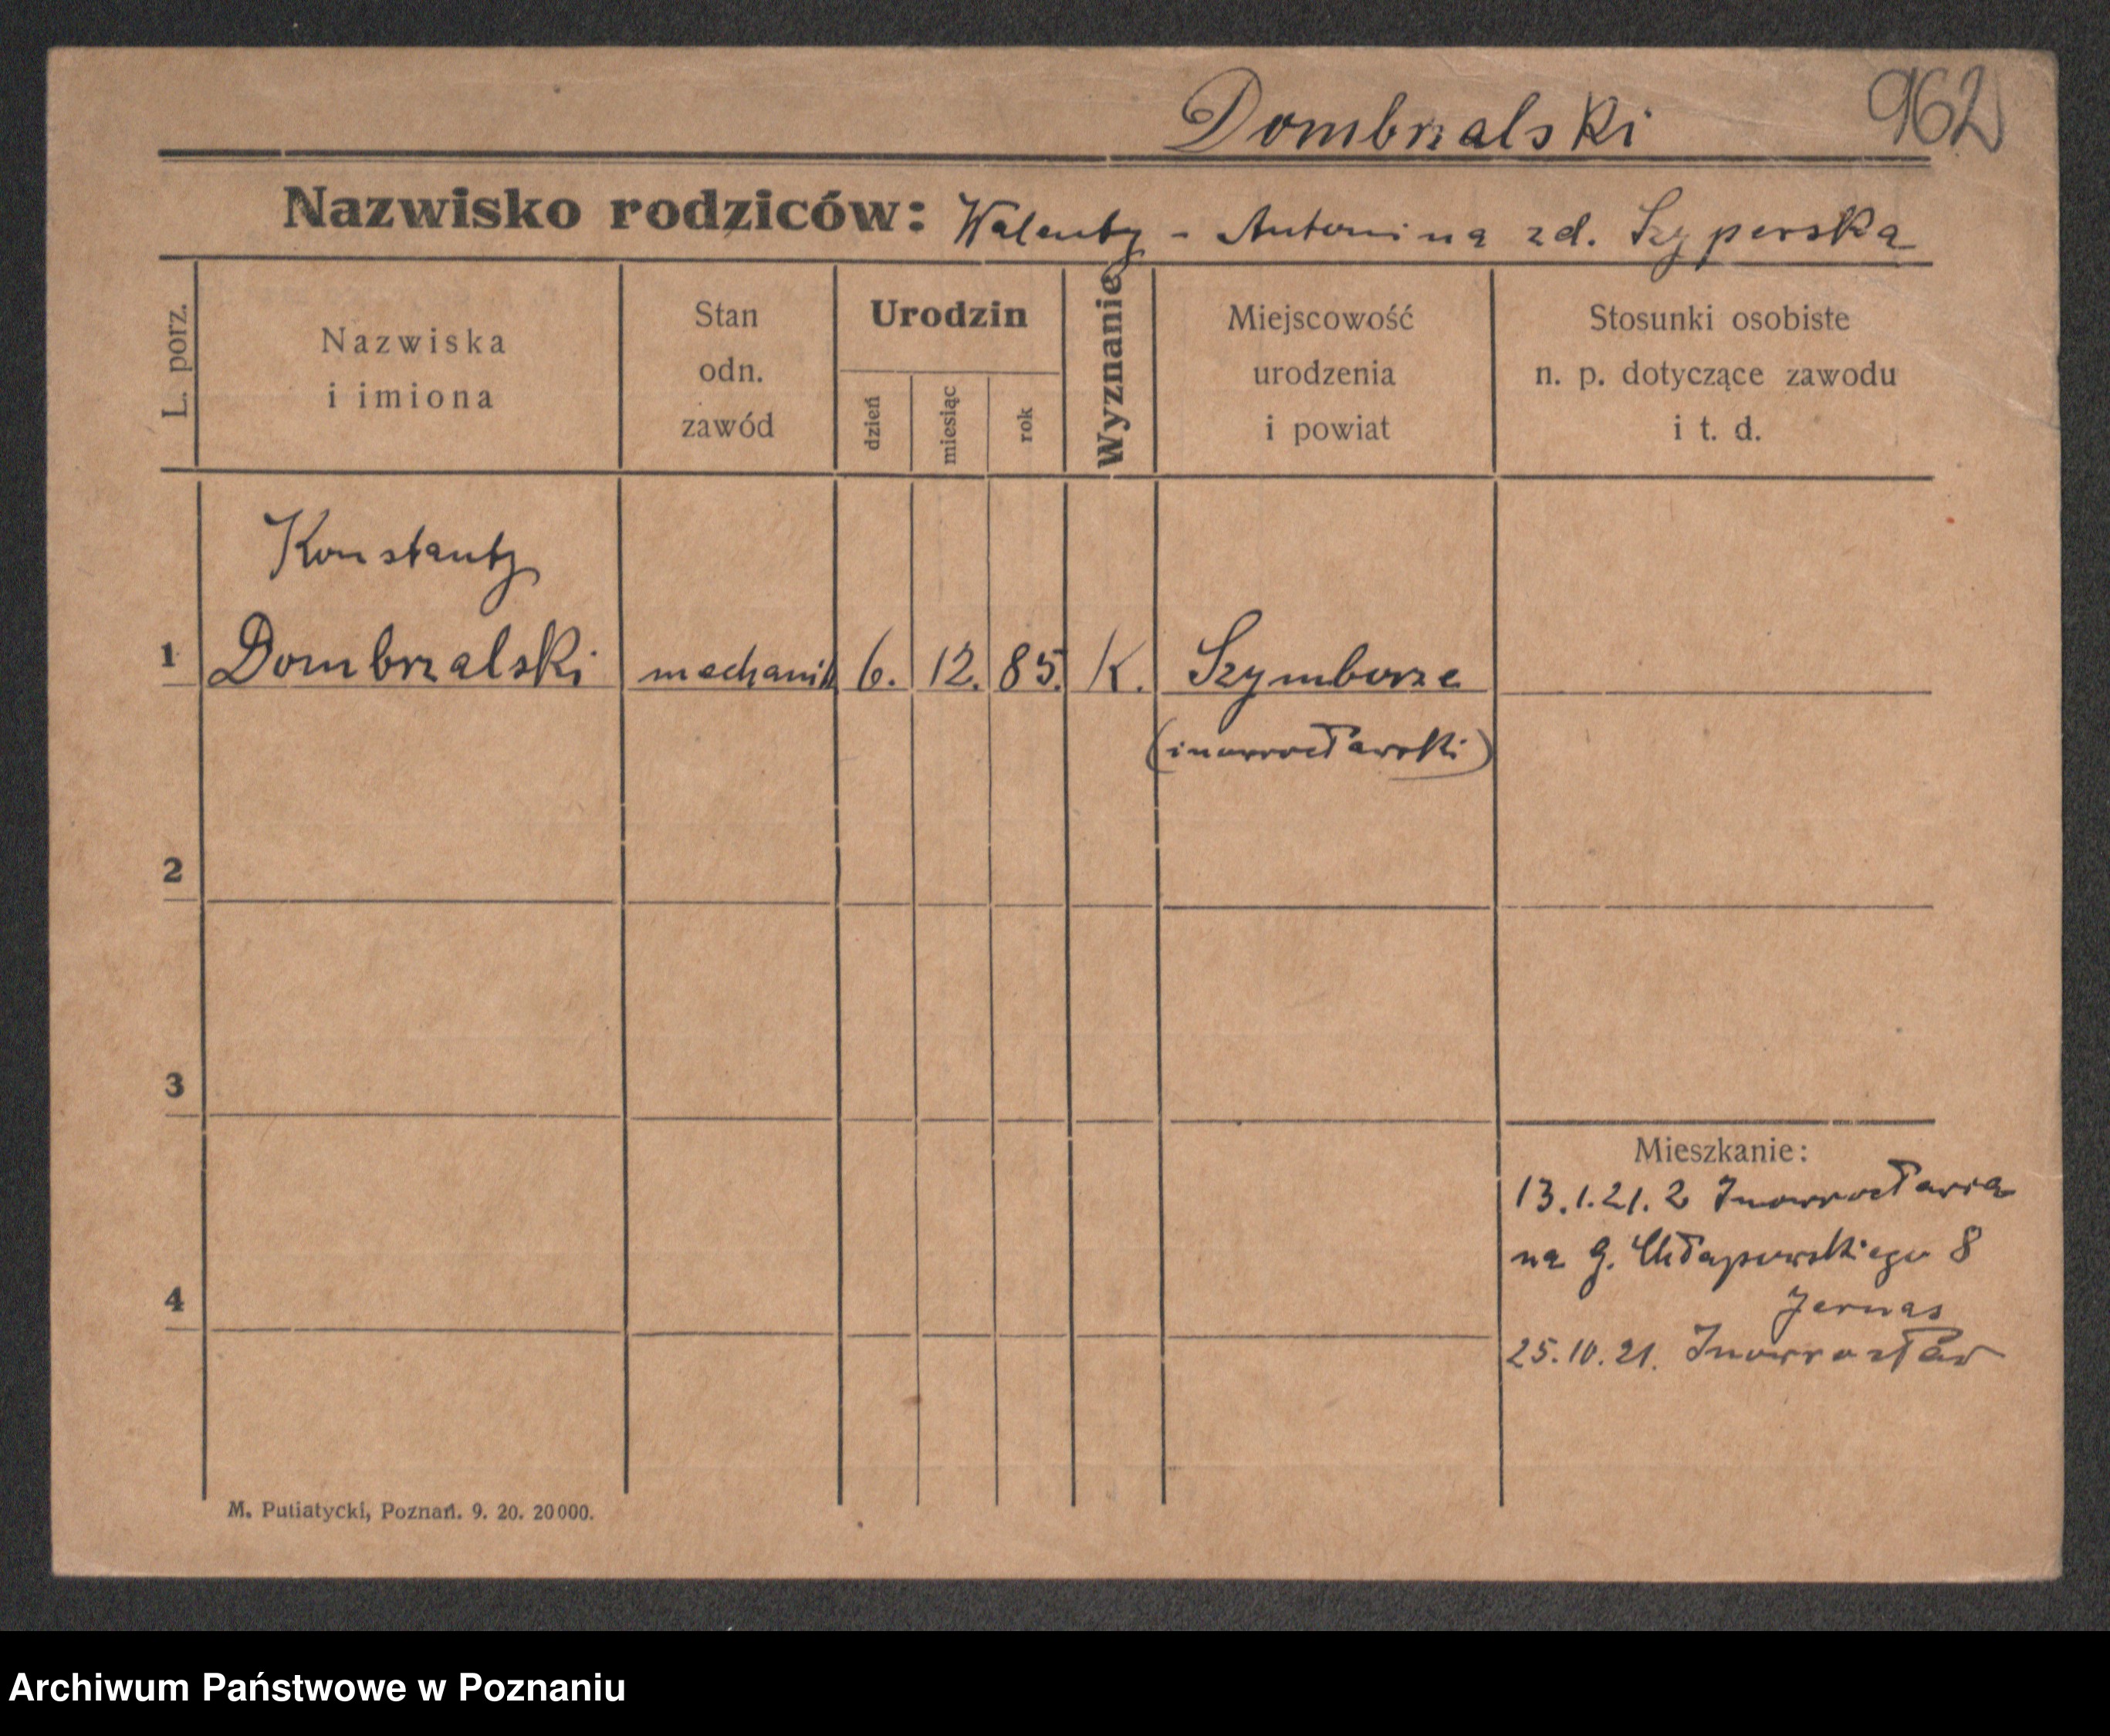 Dombrzalski
962
Nazwisko rodziców: Walenty - Antonina zd. Szyperska
L. porz.
Nazwiska
i imiona
Stan
odn.
zawód
Urodzin
dzień
miesiąc
rok
Wyznanie
Miejscowość
urodzenia
i powiat
Stosunki osobiste
n. p. dotyczące zawodu
i t. d.
Konstanty
1 Dombrzalski mechanik 6. 12. 85. K. Szymborze
(inowrocławski)
2
3
Mieszkanie:
13.1.21. z Inowrocławia
na G. Chłapowskiego 8
4
Jernas
25.10.21. Inowrocław
M. Putiatycki, Poznań. 9. 20. 20000.
Archiwum Państwowe w Poznaniu